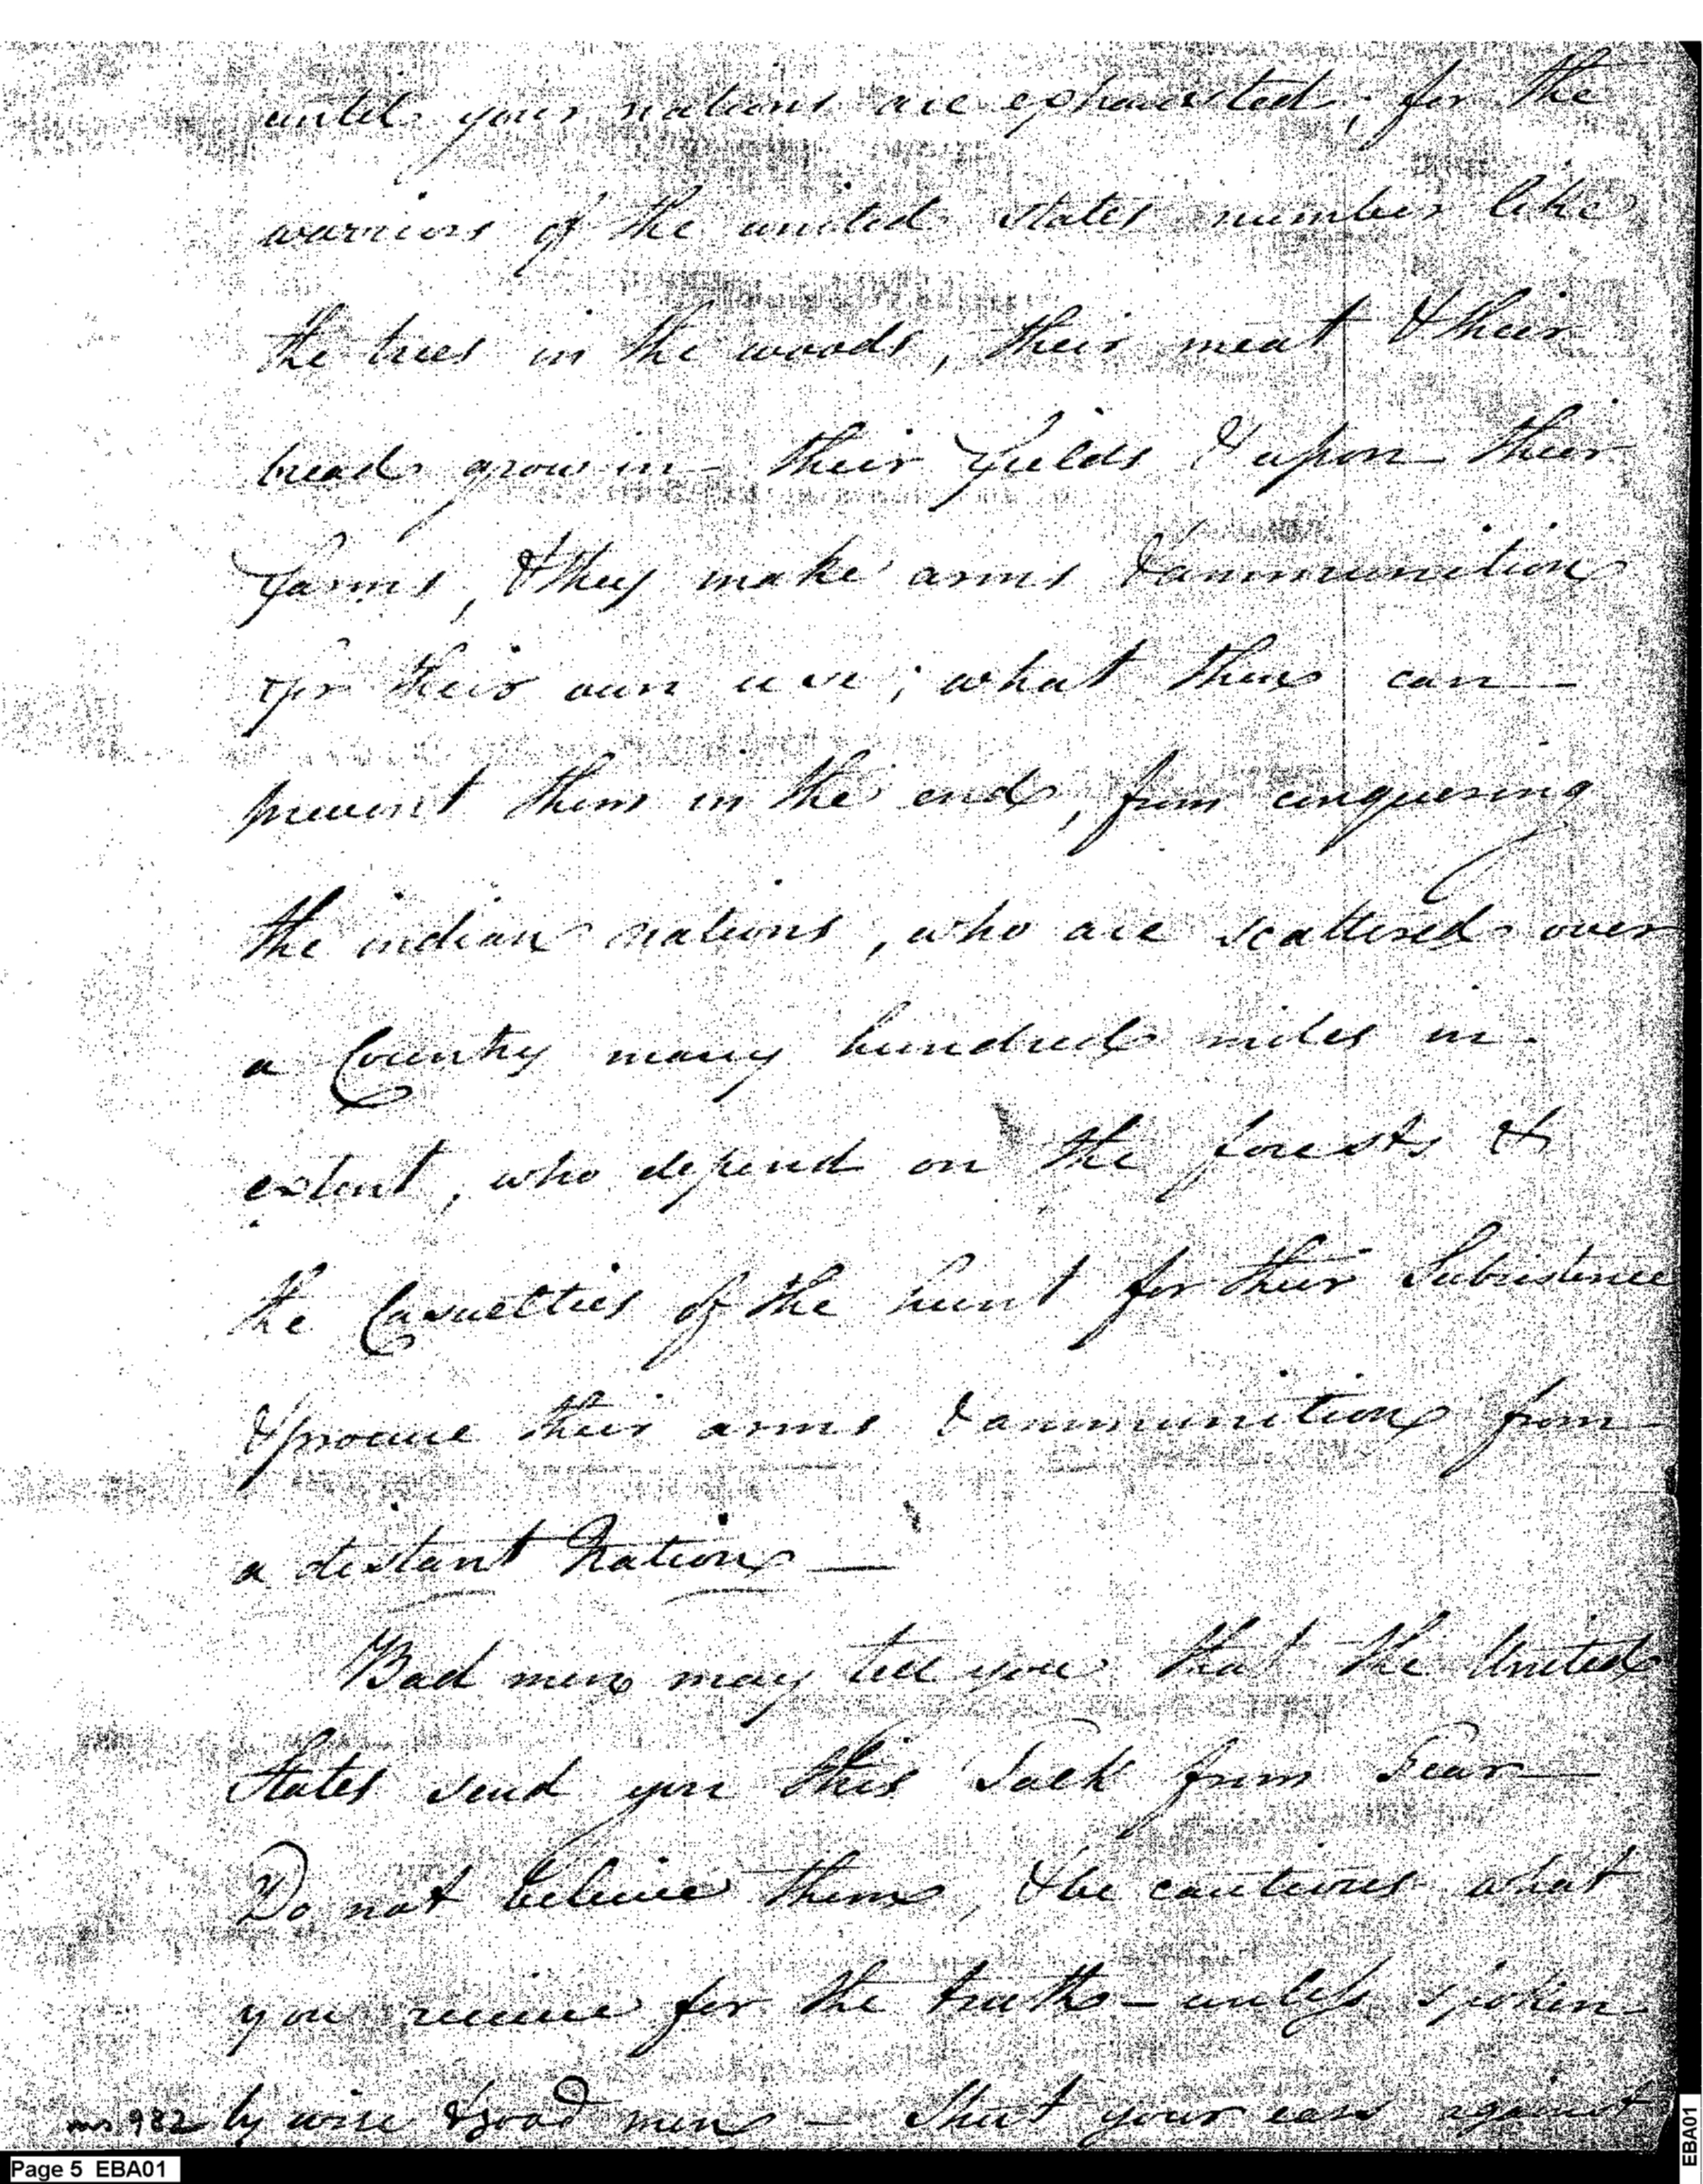 until your nations are exhausted; for the
warriors of the united states number like
the trees in the woods, their meat & their
bread grow in - their fields & upon their
farms, & they make arms & ammunition
for their own use; what then can -
prevent them in the end, from conquering
the indian nations, who are scattered over
a Country many hundred miles in -
extent, who depend on the forests &
the Casuelties of the hunt for their Subsistence
& procure their arms & ammunition from -
a distant Nation —
Bad men may tell you that the United
States send you this Talk from Fear —
Do not believe them, & be cautious what
you receive for the truth - unless spoken
by wise & good men — Shut your ears against
ms 982
Page 5 EBA01
EBA01